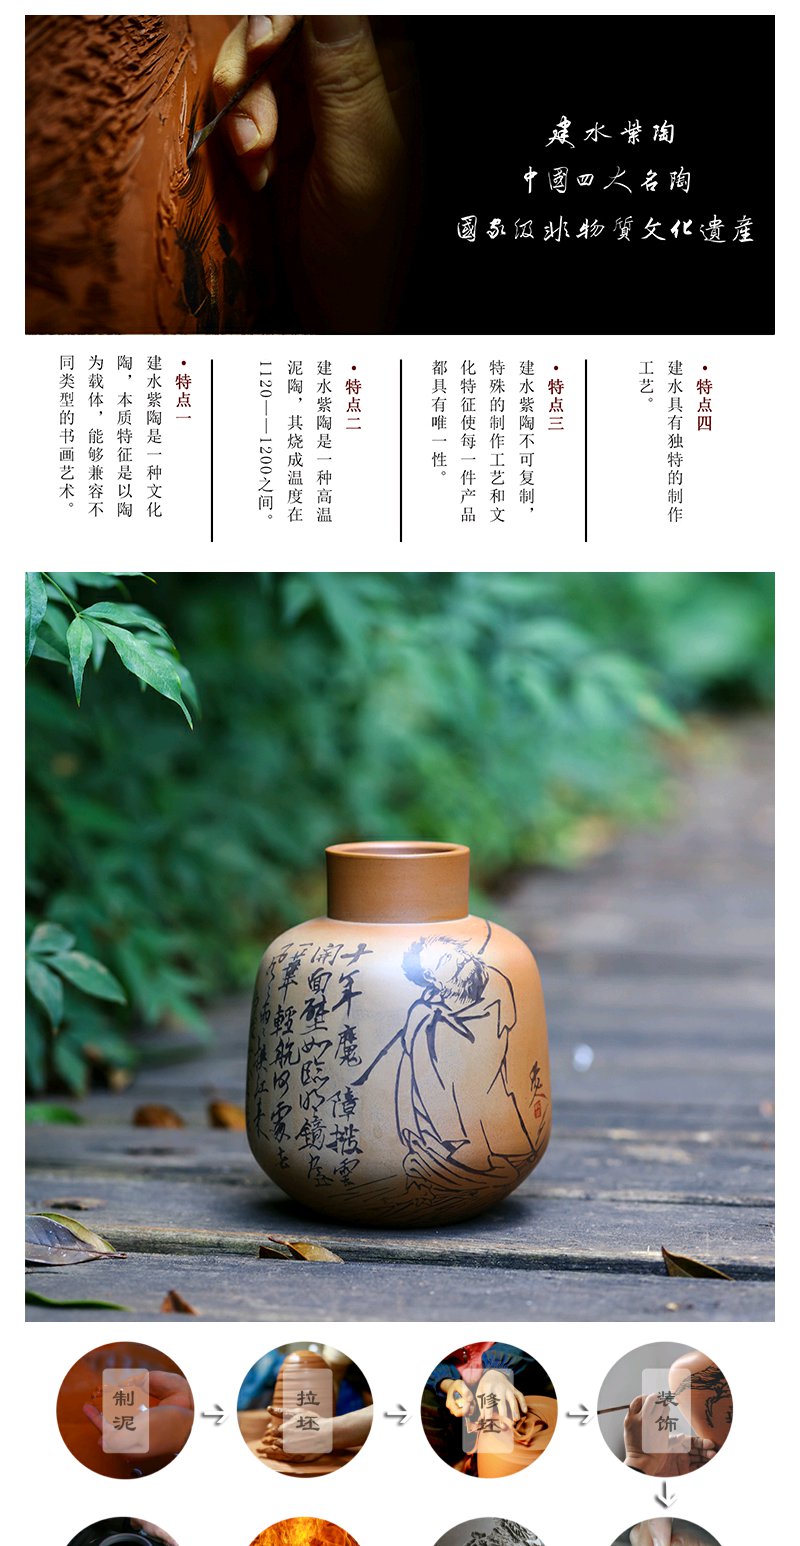 建水紫陶
中國四大名陶
國家级非物質文化遺産
•特点一
建水紫陶是一种文化
陶，本质特征是以陶
为载体，能够兼容不
同类型的书画艺术。
•特点二
建水紫陶是一种高温
泥陶，其烧成温度在
1120——1200之间。
•特点三
建水紫陶不可复制，
特殊的制作工艺和文
化特征使每一件产品
都具有唯一性。
•特点四
建水具有独特的制作
工艺。
十年魔障撥雲
開面壁如臨明鏡臺
一葦輕航何處去
制泥
拉坯
修坯
装饰